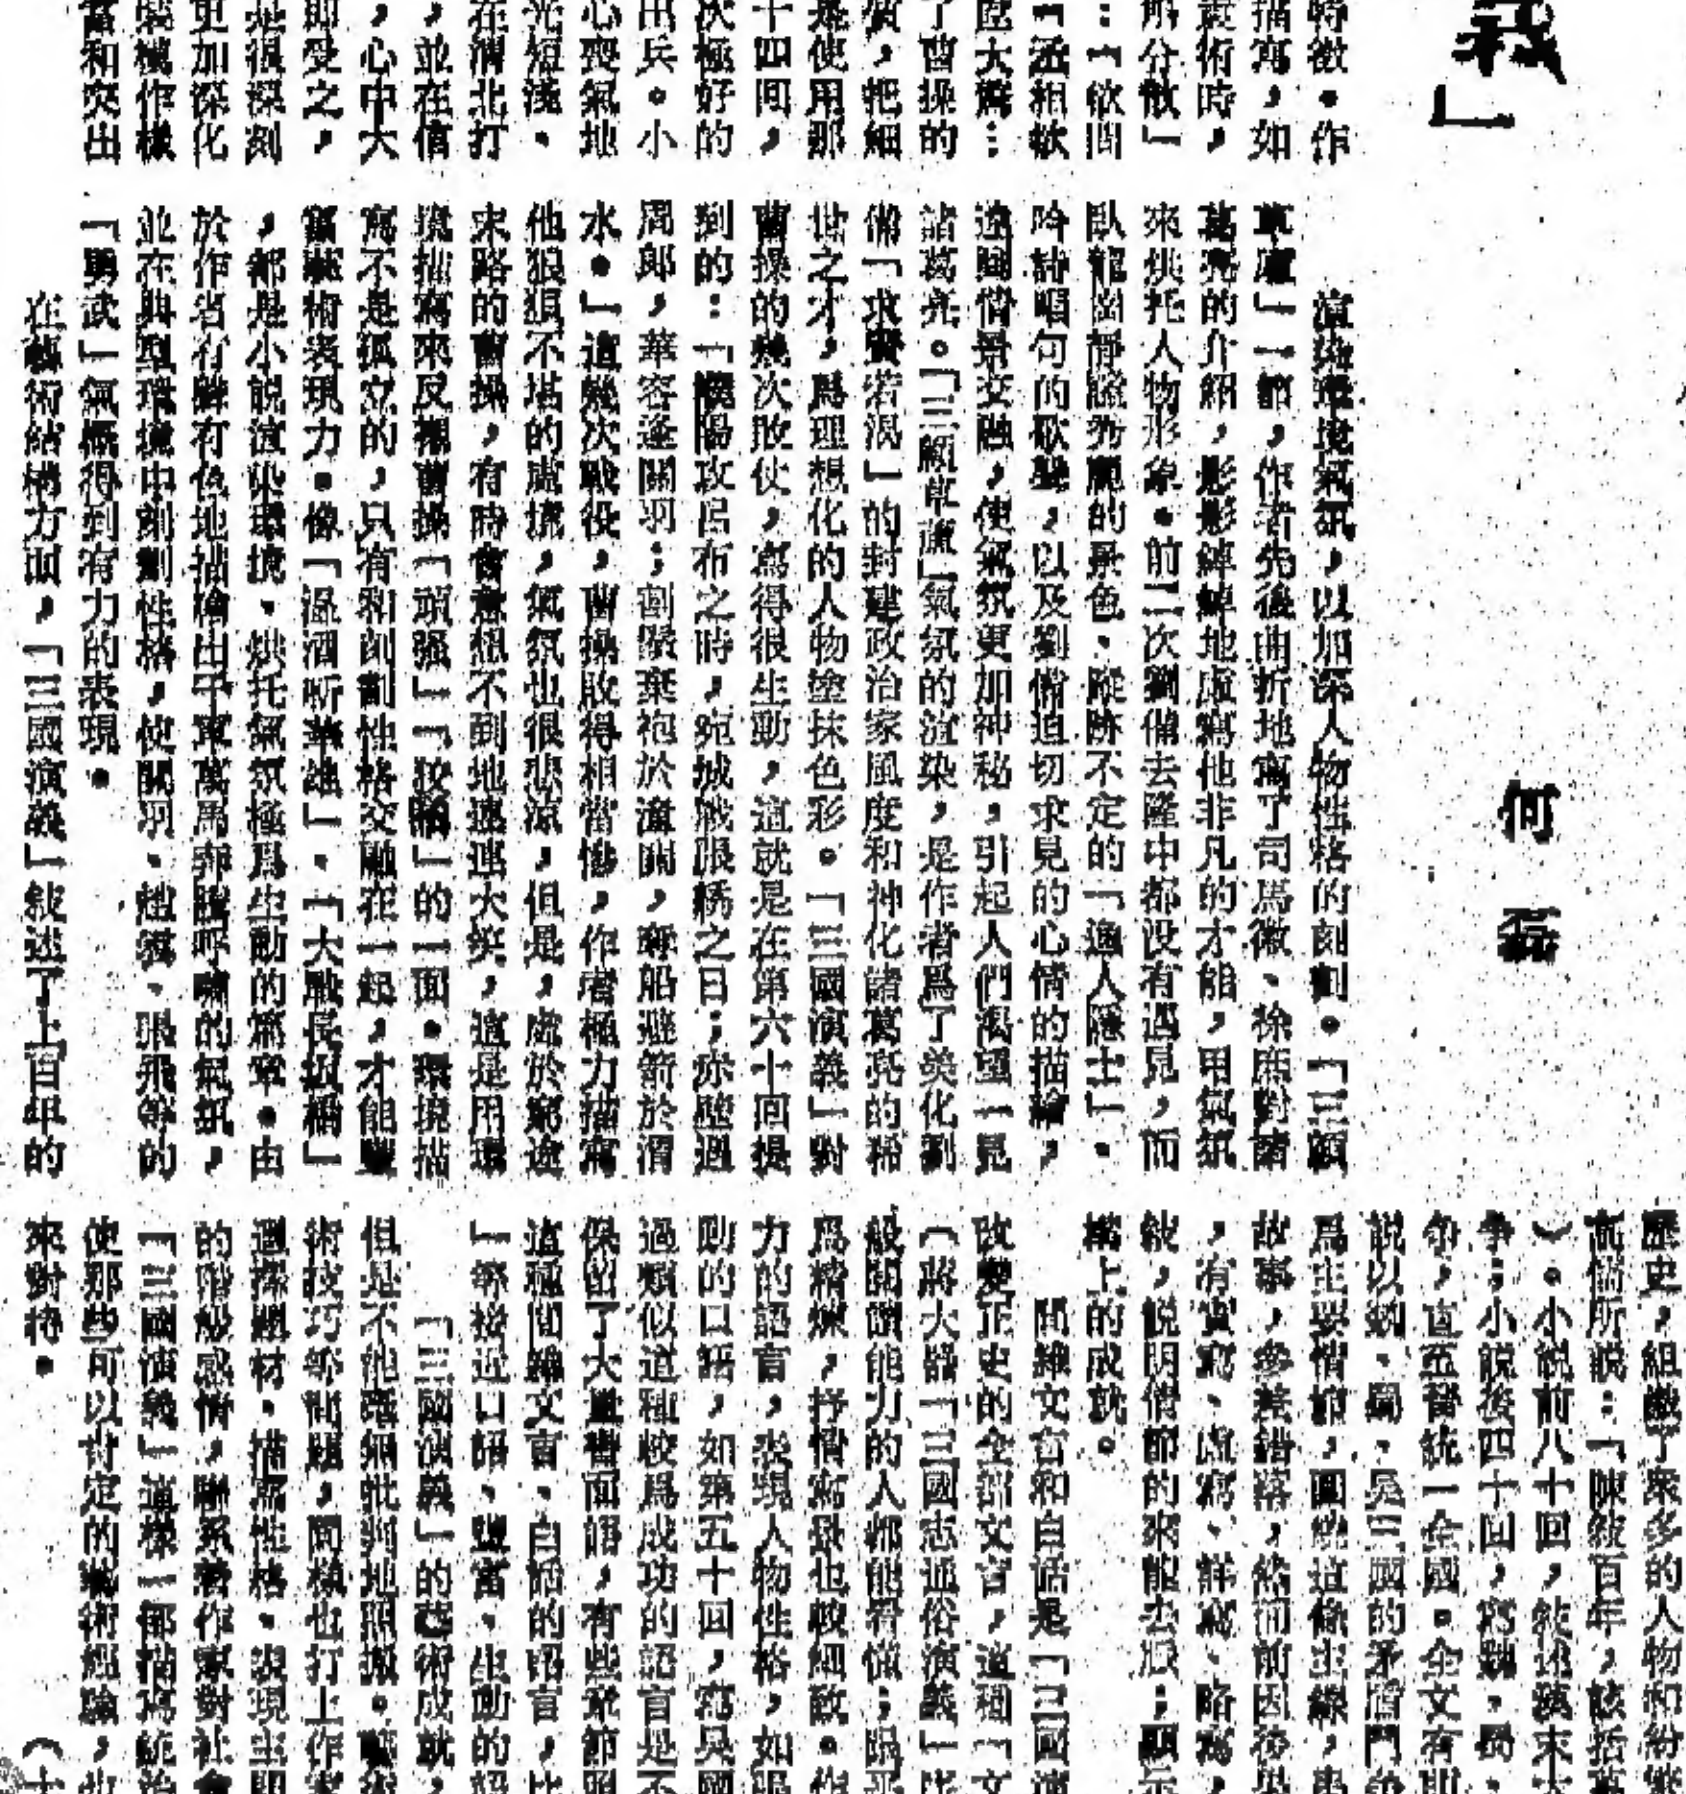 義」
何磊
特徵。作
描寫，如
技術時，
所分散」
：「欲問
「丞相欲
匡大舊：
了曹操的
廣，把細
是使用那
十四回，
次極好的
出兵。小
心喪氣地
光短淺。
在渭北打
，並在信
，心中大
即受之，
是很深刻
更加深化
裝模作樣
富和突出
渲染環境氣氛，以加深人物性格的刻劃。「三顧
草廬」一節，作者先後曲折地寫了司馬徽、徐庶對諸
葛亮的介紹，影影綽綽地虛寫他非凡的才能，用氣氛
來烘托人物形象。前二次劉備去隆中都沒有遇見，而
臥龍崗靜謐秀麗的景色、蹤跡不定的「逸人隱士」、
吟詩唱句的歌聲，以及劉備迫切求見的心情的描繪，
這個情景交融，使氣氛更加神秘，引起人們渴望一見
諸葛亮。「三顧草廬」氣氛的渲染，是作者爲了美化劉
備「求賢若渴」的封建政治家風度和神化諸葛亮的稀
世之才，爲理想化的人物塗抹色彩。「三國演義」對
曹操的幾次敗仗，寫得很生動，這就是在第六十回提
到的：「濮陽攻呂布之時，宛城戰張綉之日；赤壁遇
周郎，華容逢關羽；割鬚棄袍於潼關，奪船避箭於渭
水。」這幾次戰役，曹操敗得相當慘，作者極力描寫
他狼狽不堪的處境，氣氛也很悲涼，但是，處於窮途
末路的曹操，有時會意想不到地連連大笑，這是用環
境描寫來反襯曹操「頑强」「狡猾」的一面。環境描
寫不是孤立的，只有和刻劃性格交融在一起，才能豐
富藝術表現力。像「溫酒斬華雄」、「大戰長坂橋」
，都是小說渲染環境、烘托氣氛極爲生動的篇章。由
於作者有聲有色地描繪出千軍萬馬奔騰呼嘯的氣氛，
並在典型環境中刻劃性格，使關羽、趙雲、張飛等的
「勇武」氣概得到有力的表現。
在藝術結構方面，「三國演義」敍述了上百年的
歷史，組織了衆多的人物和紛繁
高儒所說：「陳敍百年，該括萬
）。小說前八十回，敍述漢末
爭；小說後四十回，寫魏、蜀、
爭，直至晉統一全國。全文有
說以魏、蜀、吳三國的矛盾鬥爭
爲主要情節，圍繞這條主線，
故事，參差錯落，然而前因後果
，有實寫、虛寫、詳寫、略寫，
敍，說明情節的來龍去脈；顯示
構上的成就。
間雜文言和白話是「三國演
改變正史的全部文言，這種「文
（蔣大器「三國志通俗演義」序
般閱讀能力的人都能看懂；
爲精煉，抒情寫景也較細致。作
力的語言，表現人物性格，如
動的口語，如第五十回，寫吳國
過類似這種較爲成功的語言是不
保留了大量書面語，有些章節照
這種間雜文言、白話的語言，比
」等接近口語、豐富、生動的語
「三國演義」的藝術成就，
但是不能毫無批判地照搬。藝術
術技巧等問題，同樣也打上作者
選擇題材、描寫性格、表現主題
的階級感情，聯系着作家對社會
「三國演義」這樣一部描寫統治
使那些可以肯定的藝術經驗，也
來對待。